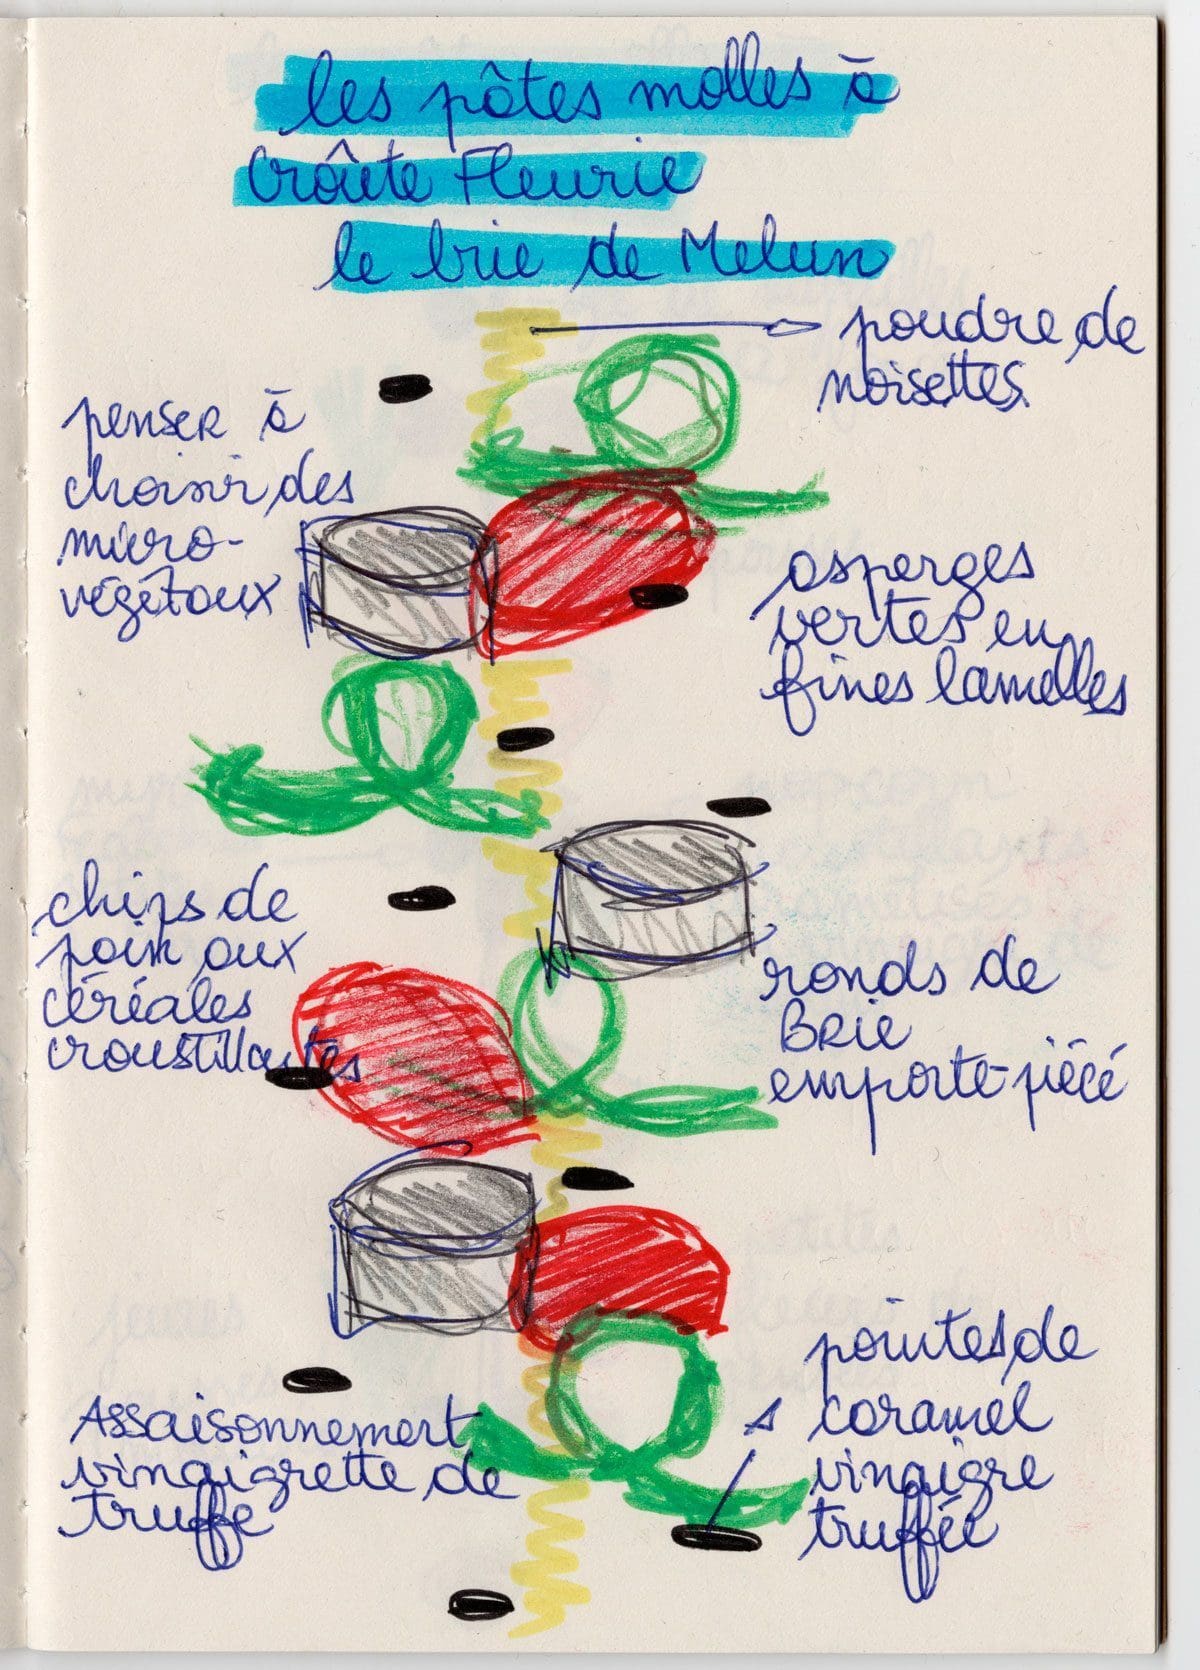 les pâtes molles à
Croûte Fleurie
le brie de Melun
poudre de
noisettes
penser à
choisir des
micro-
végétaux
asperges
vertes en
fines lamelles
chips de
pain aux
céréales
croustillantes
ronds de
Brie
emporte-piécé
pointes de
caramel
vinaigre
truffée
Assaisonnement
vinaigrette de
truffe